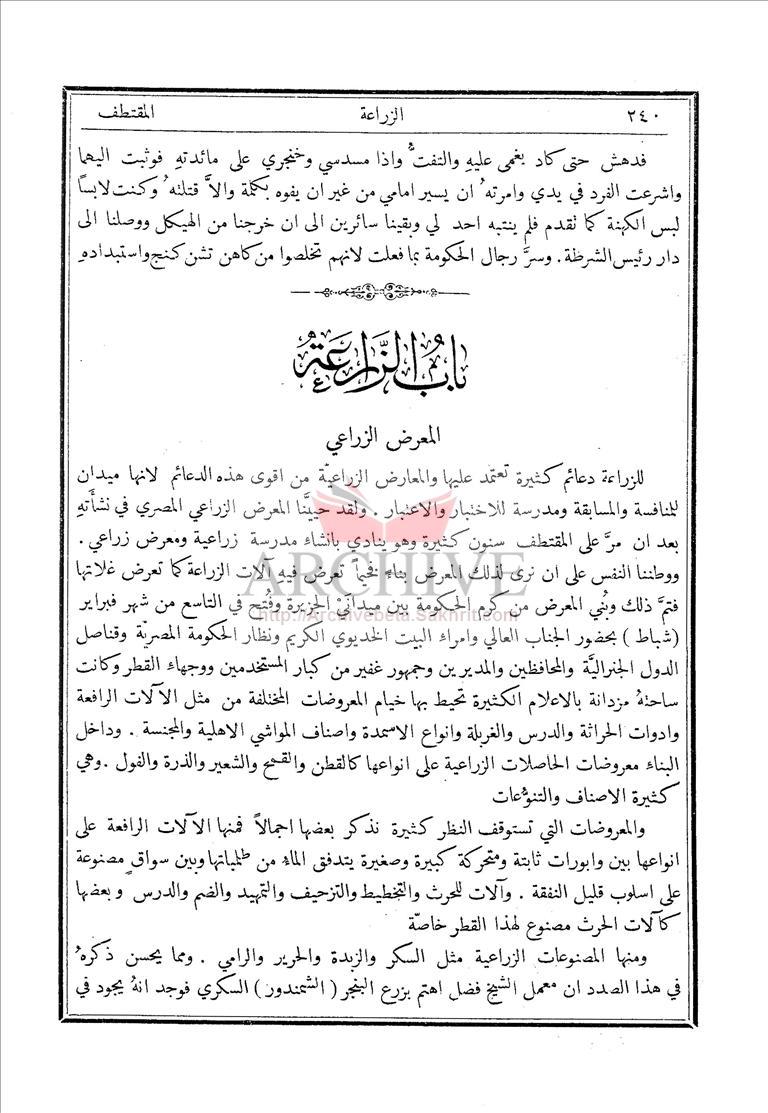 ٢٤٠ الزراعة المقتطف
فدهش حتى كاد يغمى عليهِ والتفتُّ واذا مسدسي وخنجري على مائدتهِ فوثبت اليهما
واشرعت الفرد في يدي وامرتهُ ان يسير امامي من غير ان يفوه بكلمة والاَّ قتلتهُ وكنت لابساً
لبس الكهنة كما نقدم فلم ينتبه احد لي وبقينا سائرين الى ان خرجنا من الهيكل ووصلنا الى
دار رئيس الشرطة . وسرَّ رجال الحكومة بما فعلت لانهم تخلصوا من كاهن تشن كنج واستبدادهِ
باب الزراعة
المعرض الزراعي
للزراعة دعائم كثيرة تعتمد عليها والمعارض الزراعيَّة من اقوى هذه الدعائم لانها ميدان
للمنافسة والمسابقة ومدرسة للاختبار والاعتبار . ولقد حيينَّا المعرض الزراعي المصري في نشأتهِ
بعد ان مرَّ على المقتطف سنون كثيرة وهو ينادي بانشاء مدرسة زراعية ومعرض زراعي .
ووطننا النفس على ان نرى لذلك المعرض بناءً فخيماً تعرض فيهِ آلات الزراعة كما تعرض غلاتها
فتمَّ ذلك وبُني المعرض من كرم الحكومة بين ميدانَيْ الجزيرة وفُتح في التاسع من شهر فبراير
(شباط) بحضور الجناب العالي وامراء البيت الخديوي الكريم ونظار الحكومة المصريَّة وقناصل
الدول الجنراليَّة والمحافظين والمديرين وجمهور غفير من كبار المستخدمين ووجهاء القطر وكانت
ساحتهُ مزدانة بالاعلام الكثيرة تحيط بها خيام المعروضات المختلفة من مثل الآلات الرافعة
وادوات الحراثة والدرس والغربلة وانواع الاسمدة واصناف المواشي الاهلية والمجنسة . وداخل
البناء معروضات الحاصلات الزراعية على انواعها كالقطن والقمح والشعير والذرة والفول . وهي
كثيرة الاصناف والتنوُّعات
والمعروضات التي تستوقف النظر كثيرة نذكر بعضها اجمالاً فمنها الآلات الرافعة على
انواعها بين وابورات ثابتة ومتحركة كبيرة وصغيرة يتدفق الماءُ من طلمباتها وبين سواقٍ مصنوعة
على اسلوب قليل النفقة . وآلات للحرث والتخطيط والتزحيف والتمهيد والضم والدرس وبعضها
كآلات الحرث مصنوع لهذا القطر خاصَّة
ومنها المصنوعات الزراعية مثل السكر والزبدة والحرير والرامي . ومما يحسن ذكرهُ
في هذا الصدد ان معمل الشيخ فضل اهتم بزرع البنجر (الشمندور) السكري فوجد انهُ يجود في
ARCHIVE
http://Archivebeta.Sakhrit.com